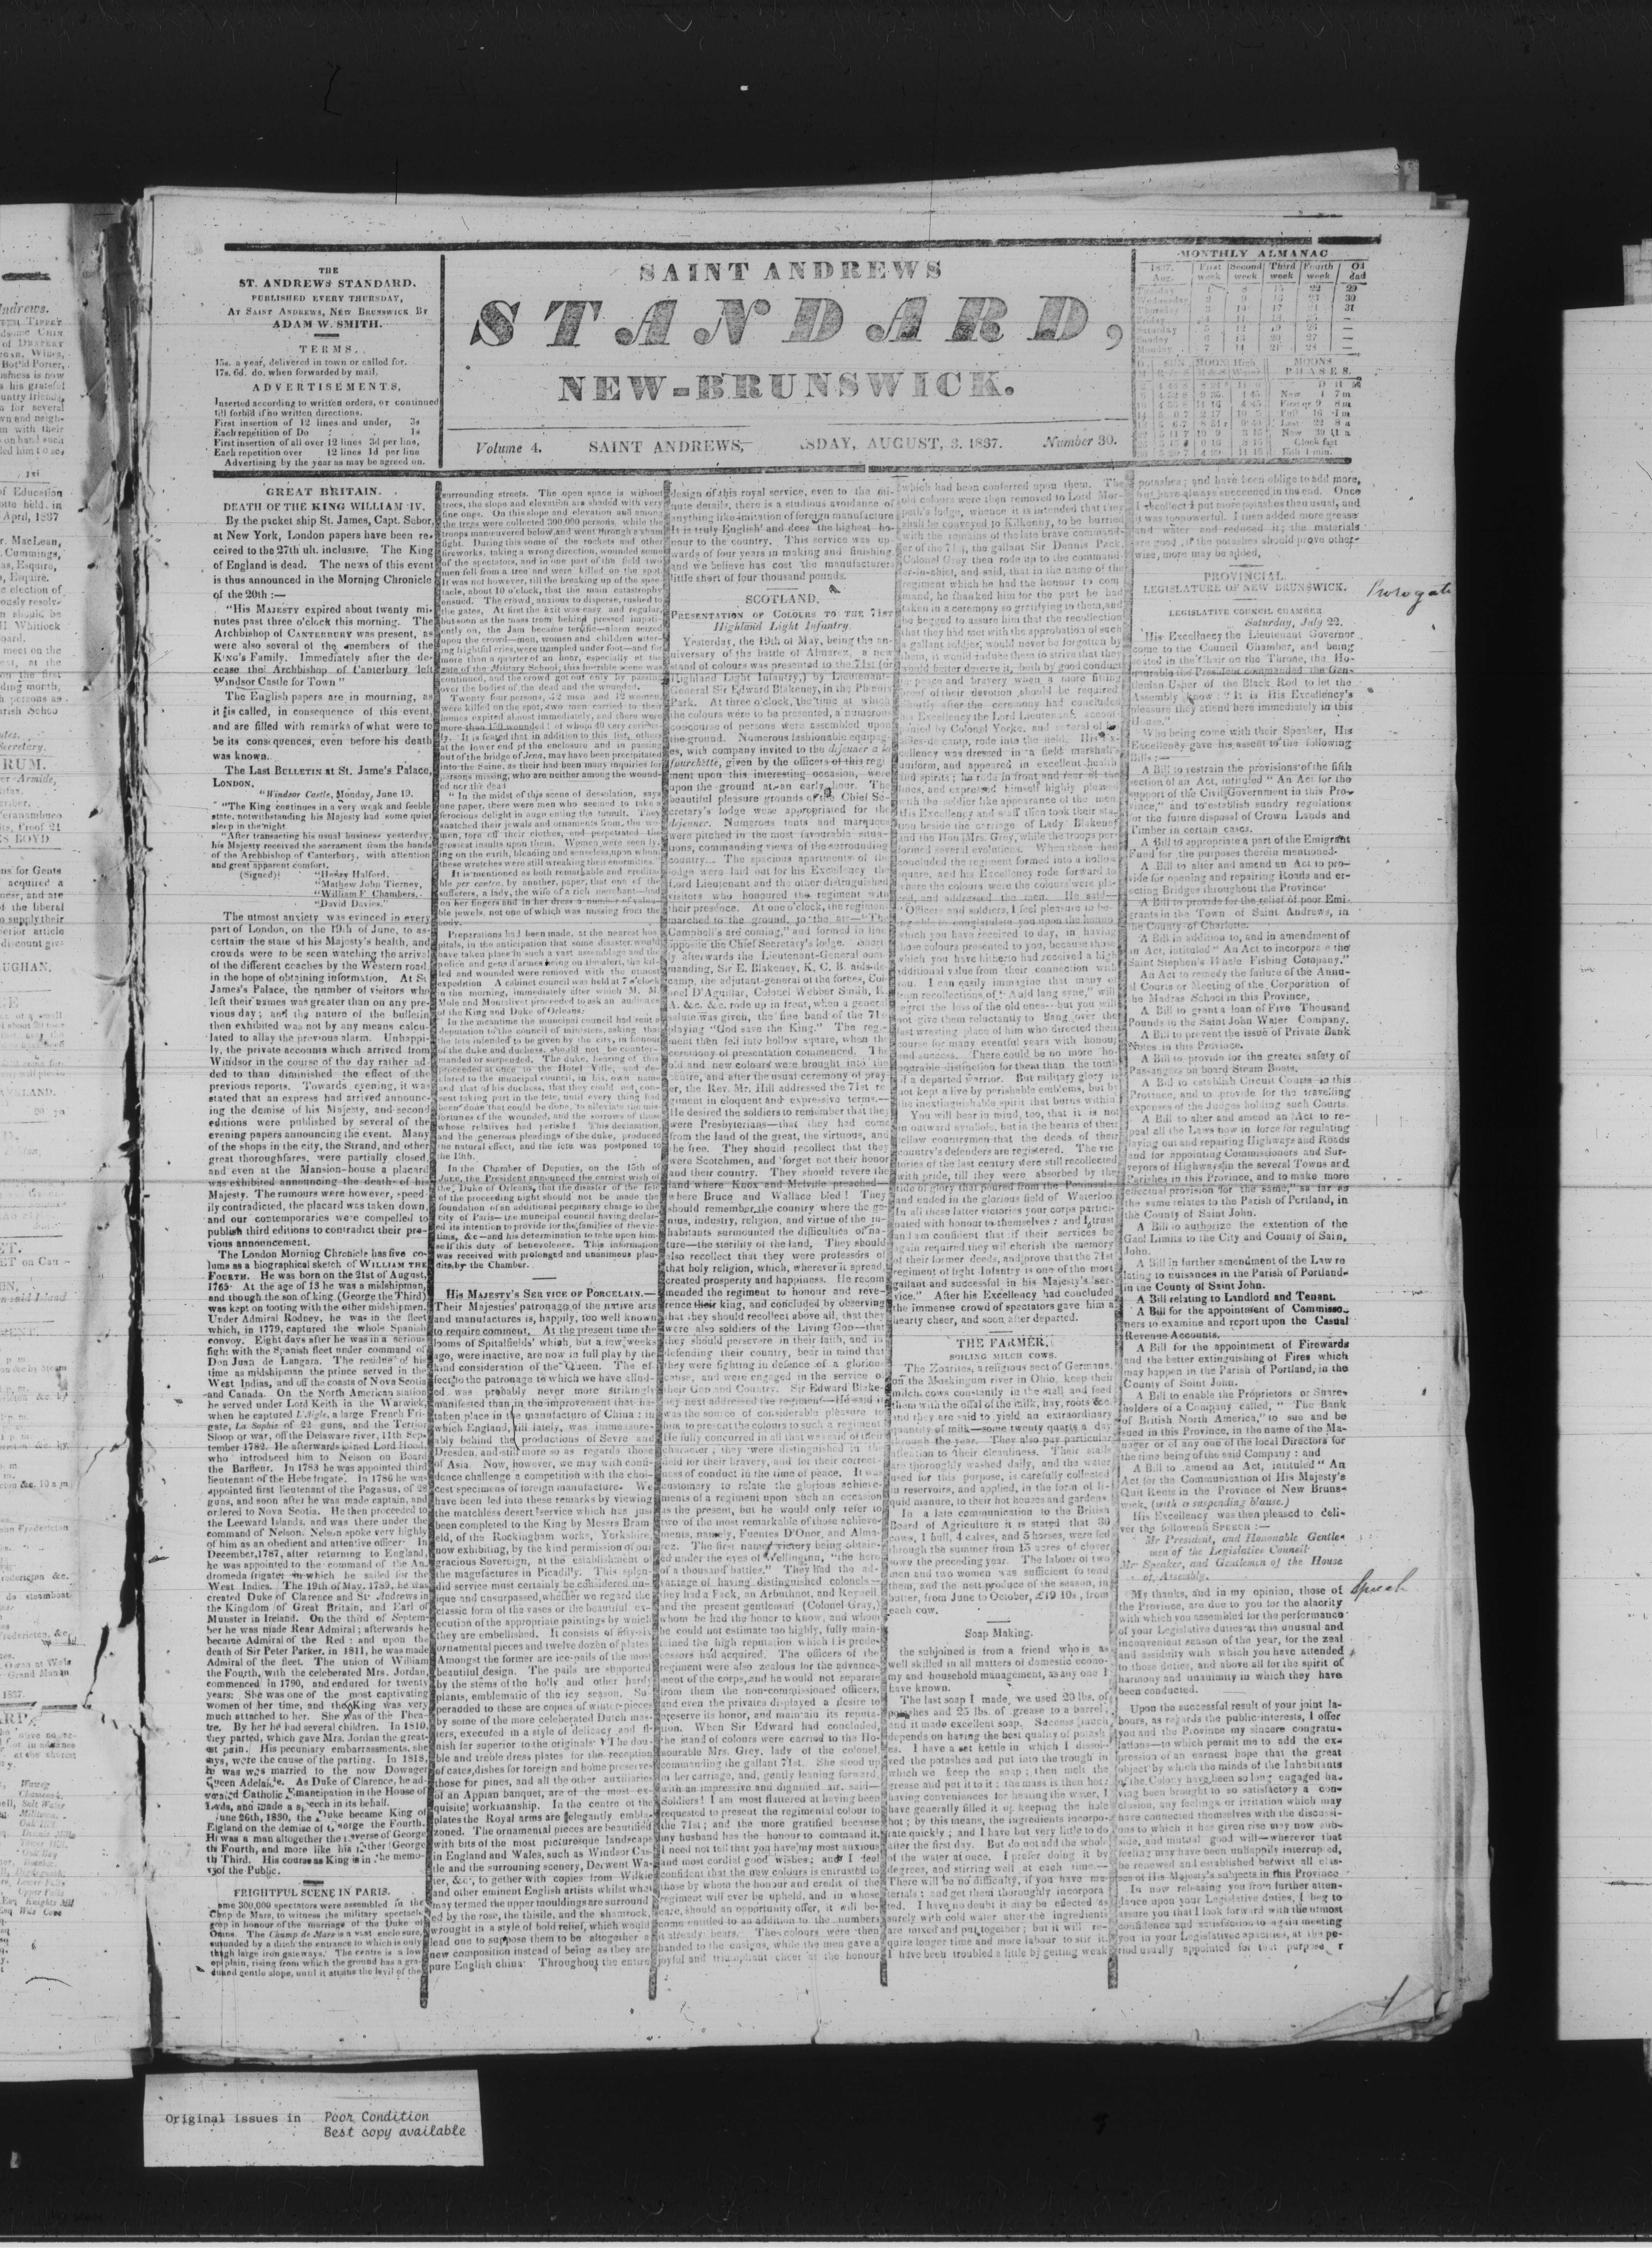 THE
ST. ANDREWS STANDARD.
PUBLISHED EVERY THURSDAY,
AT SAINT ANDREWS, NEW BRUNSWICK BY
ADAM W. SMITH.
TERMS.
15s. a year, delivered in town or called for.
17s. 6d. do. when forwarded by mail.
ADVERTISEMENTS,
Inserted according to written orders, or continued
till forbid if no written directions.
First insertion of 12 lines and under, 3s
Each repetition of Do 1s
First insertion of all over 12 lines 3d per line,
Each repetition over 12 lines 1d per line
Advertising by the year as may be agreed on.
SAINT ANDREWS
STANDARD,
NEW-BRUNSWICK.
Volume 4. SAINT ANDREWS, SDAY, AUGUST, 3. 1837. Number 30.
MONTHLY ALMANAC
GREAT BRITAIN.
DEATH OF THE KING WILLIAM IV.
By the packet ship St. James, Capt. Sebor,
at New York, London papers have been re-
ceived to the 27th ult. inclusive. The King
of England is dead. The news of this event
is thus announced in the Morning Chronicle
of the 20th :—
"His MAJESTY expired about twenty mi-
nutes past three o'clock this morning. The
Archbishop of CANTERBURY was present, as
were also several of the members of the
KING'S Family. Immediately after the de-
cease the Archbishop of Canterbury left
Windsor Castle for Town"
The English papers are in mourning, as
it is called, in consequence of this event,
and are filled with remarks of what were to
be its consequences, even before his death
was known.
The Last BULLETIN at St. Jame's Palace,
LONDON.
"Windsor Castle, Monday, June 19.
"The King continues in a very weak and feeble
state, notwithstanding his Majesty had some quiet
sleep in the night.
"After transacting his usual business yesterday,
his Majesty received the sacrament from the hands
of the Archbishop of Canterbury, with attention
and great apparent comfort.
(Signed) "Henry Halford,
"Mathew John Tierney,
"William F. Chambers,
"David Davies."
The utmost anxiety was evinced in every
part of London, on the 19th of June, to as-
certain the state of his Majesty's health, and
crowds were to be seen watching the arrival
of the different coaches by the Western road
in the hope of obtaining information. At St
James's Palace, the number of visitors who
left their names was greater than on any pre-
vious day ; and the nature of the bulletin
then exhibited was not by any means calcu-
lated to allay the previous alarm. Unhappi-
ly, the private accounts which arrived from
Windsor in the course of the day rather ad-
ded to than diminished the effect of the
previous reports. Towards evening, it was
stated that an express had arrived announc-
ing the demise of his Majesty, and second
editions were published by several of the
evening papers announcing the event. Many
of the shops in the city, the Strand, and other
great thoroughfares, were partially closed,
and even at the Mansion-house a placard
was exhibited announcing the death of his
Majesty. The rumours were however, speed
ily contradicted, the placard was taken down,
and our contemporaries were compelled to
publish third editions to contradict their pre-
vious announcement.
The London Morning Chronicle has five co-
lums as a biographical sketch of WILLIAM THE
FOURTH. He was born on the 21st of August,
1765. At the age of 13 he was a midshipman,
and though the son of king (George the Third)
was kept on footing with the other midshipmen.
Under Admiral Rodney, he was in the fleet
which, in 1779, captured the whole Spanish
convoy. Eight days after he was in a serious
fight with the Spanish fleet under command of
Don Juan de Langara. The residue of his
time as midshipman the prince served in the
West Indias, and off the coasts of Nova Scotia
and Canada. On the North American station
he served under Lord Keith in the Warwick,
when he captured L'Aigle, a large French Fri-
gate, La Sophie of 22 guns, and the Terrier
Sloop or war, off the Delaware river, 11th Sep-
tember 1782. He afterwards joined Lord Hood,
who introduced him to Nelson on Board
the Barfleur. In 1783 he was appointed third
lieutenant of the Hebe frigate. In 1786 he was
appointed first lieutenant of the Pagasus, of 28
guns, and soon after he was made captain, and
ordered to Nova Scotia. He then proceeded to
the Leeward Islands, and was there under the
command of Nelson. Nelson spoke very highly
of him as an obedient and attentive officer. In
December, 1787, after returning to England,
he was appointed to the command of the An-
dromeda frigate, in which he sailed for the
West Indies. The 19th of May. 1789, he was
created Duke of Clarence and St. Andrews in
the Kingdom of Great Britain, and Earl of
Munster in Ireland. On the third of Septem-
ber he was made Rear Admiral ; afterwards he
became Admiral of the Red : and upon the
death of Sir Peter Parker, in 1811, he was made
Admiral of the fleet. The union of William
the Fourth, with the celeberated Mrs. Jordan,
commenced in 1790, and endured for twenty
years: She was one of the most captivating
women of her time, and the King was very
much attached to her. She was of the Thea-
tre. By her he had several children. In 1810,
they parted, which gave Mrs. Jordan the great-
est pain. His pecuniary embarrassments, she
says, were the cause of the parting. In 1818,
he was was married to the now Dowager
Queen Adelaide. As Duke of Clarence, he ad-
vocated Catholic Emancipation in the House of
Lords, and made a speech in its behalf.
June 26th, 1830, the Duke became King of
England on the demise of George the Fourth.
He was a man altogether the reverse of George
the Fourth, and more like his father George
the Third. His course as King is in the memo-
ry of the Public.
FRIGHTFUL SCENE IN PARIS.
ome 300,000 spectators were assembled in the
Champ de Mars, to witness the military spectacle
given in honour of the marriage of the Duke of
The Champ de Mars is a vast enclosure,
surrounded by a ditch the entrance to which is only
through large iron gateways. The centre is a low
open plain, rising from which the ground has a gra-
dual gentle slope, until it attains the level of the
surrounding streets. The open space is without
trees, the slope and elevation are shaded with very
fine ones. On this slope and elevation and among
the trees were collected 300,000 persons, while the
troops maneuvered below, and went through a sham
fight. During this some of the rockets and other
fireworks, taking a wrong direction, wounded some
of the spectators, and in one part of the field two
men fell from a tree and were killed on the spot.
It was not however, till the breaking up of the spec-
tacle, about 10 o'clock, that the main catastrophy
ensued. The crowd, anxious to disperse, rushed to
the gates, At first the exit was easy and regular,
but soon as the mass from behind pressed impati-
ently on, the Jam became terrific—alarm seized
upon the crowd—men, women and children utter-
ing frightful cries, were trampled under foot—and for
more than a quarter of an hour, especially at the
gate of the Military School, this horrible scene was
continued, and the crowd got out only by passing
over the bodies of the dead and the wounded.
Twenty four persons, 12 men and 12 women,
were killed on the spot, two men carried to their
homes expired almost immediately, and there were
more than 150 wounded : of whom 40 very serious-
ly. It is feared that in addition to this list, others
at the lower end of the enclosure and in passing
out of the bridge of Jena, may have been precipitated
into the Saine, as their had been many inquiries for
persons missing, who are neither among the wound-
ed nor the dead
"In the midst of this scene of desolation, says
one paper, there were men who seemed to take a
ferocious delight in augmenting the tumult. They
snatched their jewels and ornaments from, the wo-
men, tore off their clothes, and perpetrated the
grossest insults upon them. Women were seen ly-
ing on the earth, bleading and senseless, upon whom
these wretches were still wreaking their enormities."
It is mentioned as both remarkable and credita-
ble per contra, by another, paper, that one of the
sufferers, a lady, the wife of a rich merchant—had
on her fingers and in her dress a number of valua-
ble jewels, not one of which was missing from the
body.
Preparations had been made, at the nearest hos-
pitals, in the anticipation that some disaster would
have taken place in such a vast assemblage and the
police and gens d'armes being on the alert, the kil-
led and wounded were removed with the utmost
expedition A cabinet council was held at 7 o'clock
in the morning, immediately after which M. M.
Mole and Montalivet proceeded to ask an audience
of the King and Duke of Orleans.
In the meantime the municipal council had sent a
deputation to the council of ministers, asking that
the fete intended to be given by the city, in honour
of the duke and duchess, should not be counter-
manded or suspended. The duke, hearing of this
proceeded at once to the Hotel Ville, and de-
clared to the muncipal council, in his own name
and that of his duchess, that they could not, con-
sent taking part in the fete, until every thing had
been done that could be done, to alleviate the mis-
fortunes of the wounded, and the sorrows of those
whose relatives had perished. This declaration,
and the generous pleadings of the duke, produced
the natural effect, and the fete was postponed to
the 19th.
In the Chamber of Deputies, on the 15th of
June, the President announced the earnest wish of
the Duke of Orleans, that the disaster of the fete
of the proceeding night should not be made the
foundation of an additional pecuniary charge to the
city of Paris—the muncipal council having declar-
ed its intention to provide for the families of the vic-
tims, &c—and his determination to take upon him-
self this duty of benevolence. This information
was received with prolonged and unanimous plau-
dits by the Chamber.
HIS MAJESTY'S SERVICE OF PORCELAIN.—
Their Majesties' patronage of the native arts
and manufactures is, happily, too well known
to require comment. At the present time the
looms of Spitalfields' which, but a few weeks
ago, were inactive, are now in full play by the
kind consideration of the Queen. The ef-
fect to the patronage to which we have allud-
ed was probably never more strikingly
manifested than in the improvement that has
taken place in the manufacture of China : in
which England, till lately, was immeasure-
ably behind the productions of Sevre and
Dresden, and still more so as regards those
of Asia. Now, however, we may with confi-
dence challenge a competition with the choi-
cest specimens of foreign manufacture. We
have been led into these remarks by viewing
the matchless desert service which has just
been completed to the King by Messrs Bram
eld, of the Rockingham works, Yorkshire,
now exhibiting, by the kind permission of our
gracious Sovereign, at the establishment of
the magufactures in Picadilly. This splen-
did service must certainly be considered un-
ique and unsurpassed, whether we regard the
classic form of the vases or the beautiful ex-
ecution of the appropriate paintings by which
they are embellished. It consists of fifty-six
ornamental pieces and twelve dozen of plates.
Amongst the former are ice-pails of the most
beautiful design. The pails are supported
by the stems of the holly and other hardy
plants, emblematic of the icy season. Su-
peradded to these are copies of winter-pieces
by some of the more celeberated Dutch mas-
ters, executed in a style of delicacy and fi-
nish far superior to the originals. The dou-
ble and treble dress plates for the reception
of cates, dishes for foreign and home preserves
those for pines, and all the other auxiliaries
of an Appian banquet, are of the most ex-
quisite workmanship. In the centre of the
plates the Royal arms are elegantly embla-
zoned. The ornamental pieces are beautified
with bits of the most picturesque landscape
in England and Wales, such as Windsor Cas-
tle and the surrouning scenery, Derwent Wa-
ter, &c, to gether with copies from Wilkie
and other eminent English artists whilst what
may termed the upper mouldings are surround-
ed by the rose, the thistle, and the shamrock,
wrought in a style of bold relief, which would
lead one to suppose them to be altogether a
new composition instead of being as they are
pure English china. Throughout the entire
design of this royal service, even to the mi-
nute details, there is a studious avoidance of
anything like imitation of foreign manufacture
It is truly English and does the highest ho-
nour to the country. This service was up-
wards of four years in making and finishing,
and we believe has cost the manufacturers
little short of four thousand pounds.
SCOTLAND.
PRESENTATION OF COLOURS TO THE 71ST
Highland Light Infantry.
Yesterday, the 19th of May, being the an-
niversary of the battle of Almarez, a new
stand of colours was presented to the 71st (or
Highland Light Infantry,) by Lieutenant-
General Sir Edward Blakeney, in the Phœnix
Park. At three o'clock, the time at which
the colours were to be presented, a numerous
concourse of persons were assembled upon
the ground. Numerous fashionable equipag-
es, with company invited to the dejeuner a la
fourchette, given by the officers of this regi-
ment upon this interesting occasion, were
upon the ground at an early hour. The
beautiful pleasure grounds of the Chief Se-
cretary's lodge were appropriated for the
dejeuner. Numerous tents and marquees
were pitched in the most favourable situa-
tions, commanding views of the surrounding
country... The spacious apartments of the
lodge were laid out for his Excellency the
Lord Lieutenant and the other distinguished
visitors who honoured the regiment with
their presence. At one o'clock, the regiment
marched to the ground, to the air—"The
Campbell's are coming," and formed in line
opposite the Chief Secretary's lodge. Short
ly afterwards the Lieutenant-General com-
manding, Sir E. Blakeney, K. C. B. aids-de
camp, the adjutant-general of the forces, Col
onel D'Aguilar, Colonel Webber Smith, R.
A. &c. &c. rode up in front, when a general
salute was given, the fine band of the 71st
playing "God save the King." The regi-
ment then fell into hollow square, when the
ceremony of presentation commenced. The
old and new colours were brought into the
centre, and after the usual ceremony of pray-
er, the Rev. Mr. Hill addressed the 71st re-
giment in eloquent and expressive terms.—
He desired the soldiers to remember that they
were Presbyterians—that they had come
from the land of the great, the virtuous, and
the free. They should recollect that they
were Scotchmen, and forget not their honor
and their country. They should revere the
land where Knox and Melville preached—
where Bruce and Wallace bled ! They
should remember the country where the ge-
nius, industry, religion, and virtue of the in-
habitants surmounted the difficulties of na-
ture—the sterility of the land. They should
also recollect that they were professors of
that holy religion, which, wherever it spread,
created prosperity and happiness. He recom
mended the regiment to honour and reve-
rence their king, and concluded by observing
that they should recollect above all, that they
were also soldiers of the Living God—that
they should persevere in their faith, and in
defending their country, bear in mind that
they were fighting in defence of a glorious
cause, and were engaged in the service of
their God and Country. Sir Edward Blake-
ney next addressed the regiment—He said it
was the source of considerable pleasure to
him to present the colours to such a regiment
He fully concurred in all that was said of their
character ; they were distinguished in the
field for their bravery, and for their correct-
ness of conduct in the time of peace. It was
customary to relate the glorious achieve-
ments of a regiment upon such an occasion
as the present, but he would only refer to
two of the most remarkable of those achieve-
ments, namely, Fuentes D'Onor, and Alma-
rez. The first named victory being obtain-
ed under the eyes of Wellington, "the hero
of a thousand battles." They had the ad-
vantage of having distinguished colonels—
they had a Pack, an Arbuthnot, and Reynell,
and the present gentleman (Colonel Gray,)
whom he had the honor to know, and whom
he could not estimate too highly, fully main-
tained the high reputation which his prede-
cessors had acquired. The officers of the
regiment were also zealous for the advance-
ment of the corps, and he would not separate
from them the non-commissioned officers,
and even the privates displayed a desire to
preserve its honor, and maintain its reputa-
tion. When Sir Edward had concluded,
the stand of colours were carried to the Ho-
nourable Mrs. Grey, lady of the colonel,
commanding the gallant 71st. She stood up
in her carriage, and, gently leaning forward,
with an impressive and dignified air, said—
Soldiers! I am most flattered at having been
requested to present the regimental colour to
the 71st ; and the more gratified because
my husband has the honour to command it.
I need not tell that you have my most anxious
and most cordial good wishes ; and I feel
confident that the new colours is entrusted to
those by whom the honour and credit of the
regiment will ever be upheld, and in whose
care, should an opportunity offer, it will be-
come entitled to an addition to the numbers
it already bears. The colours were then
handed to the ensigns, while the men gave a
joyful and triumphant cheer at the honour
which had been conferred upon them. The
old colours were then removed to Lord Mor-
peth's lodge, whence it is intended that they
shall be conveyed to Kilkenny, to be burried
with the remains of the late brave command-
er of the 71st, the gallant Sir Dennis Pack.
Colonel Grey then rode up to the command-
er-in-chief, and said, that in the name of the
regiment which he had the honour to com
mand, he thanked him for the part he had
taken in a ceremony so gratifying to them, and
he begged to assure him that the recollection
that they had met with the approbation of such
a gallant soldier, would never be forgotten by
them, it would induce them to strive that they
would better deserve it, both by good conduct
in peace and bravery when a more fitting
proof of their devotion should be required
Shortly after the ceremony had concluded
his Excellency the Lord Lieutenant, accom-
panied by Colonel Yorke, and several of his
aides-de-camp, rode into the field. His Ex-
cellency was dressed in a field marshall's
uniform, and appeared in excellent health
and spirits ; he rode in front and rear of the
lines, and expressed himself highly pleased
with the soldier like appearance of the men.
His Excellency and staff then took their sta-
tion beside the carriage of Lady Blakeney
and the Hon. Mrs. Grey, while the troops per-
formed several evolutions. When these had
concluded the regiment formed into a hollow
square, and his Excellency rode forward to
where the colours were the colours were pla-
ced, and addressed the men. He said—
"Officers and soldiers, I feel pleasure in be-
ing able to congratulate you upon the honour
which you have received to day, in having
those colours presented to you, because those
which you have hitherto had received a high
additional value from their connection with
you. I can easily imagine that many of
from recollections of "Auld lang syne," will
regret the loss of the old ones—but you will
not give them reluctantly to Hang over the
last wresting place of him who directed their
course for many eventful years with honour
and success. There could be no more ho-
nourable distinction for them than the tomb
of a departed warrior. But military glory is
not kept a live by perishable emblems, but by
the inextinguishable spirit that burns within
You will bear in mind, too, that it is not
in outward symbols, but in the hearts of their
fellow countrymen that the deeds of their
country's defenders are registered. The vic
tories of the last century were still recollected
with pride, till they were absorbed by the
tide of glory that poured from the Peninsula
and ended in the glorious field of Waterloo
In all these latter victories your corps partici-
pated with honour to themselves : and I trust
and I am confident that if their services be
again required, they wil cherish the memory
of their former deeds, and prove that the 71st
regiment of light Infantry is one of the most
gallant and successful in his Majesty's ser-
vice." After his Excellency had concluded
the immense crowd of spectators gave him a
hearty cheer, and soon after departed.
THE FARMER.
SOILING MILCH COWS.
The Zoarites, a religious sect of Germans,
on the Muskingum river in Ohio, keep their
milch cows constantly in the stall and feed
them with the offal of the milk, hay, roots &c.
and they are said to yield an extraordinary
quantity of milk—some twenty quarts a day
through the year. They also pay particular
attention to their cleanliness. Their stalls
are thoroughly washed daily, and the water
used for this purpose, is carefully collected
in reservoirs, and applied, in the form of li-
quid manure, to their hot houses and gardens.
In a late communication to the British
Board of Agriculture it is stated that 30
cows, 1 bull, 4 calves, and 5 horses, were fed
through the summer from 15 acres of clover
sown the preceding year. The labour of two
men and two women was sufficient to tend
them, and the nett produce of the season, in
butter, from June to October, £19 10s, from
each cow.
Soap Making.
the subjoined is from a friend who is as
well skilled in all matters of domestic econo-
my and household management, as any one I
have known.
The last soap I made, we used 20 lbs. of
potashes and 25 lbs. of grease to a barrel,
and it made excellent soap. Success much
depends on having the best quality of potash
es. I have a set kettle in which I dissol-
ved the potashes and put into the trough in
which we keep the soap ; then melt the
grease and put it to it : the mass is then hot ;
having conveniences for heating the water, I
have generally filled it up keeping the hole
hot ; by this means, the ingredients incorpo-
rate quickly ; and I have but very little to do
after the first day. But do not add the whole
of the water at once. I prefer doing it by
degrees, and stirring well at each time.—
There will be no difficulty, if you have me-
terials ; and get them thoroughly incorpora
ted. I have no doubt it may be effected as
surely with cold water after the ingredients
are mixed and put together ; but it will re-
quire longer time and more labour to stir it.
I have been troubled a little by getting weak
potashes ; and have been oblige to add more,
but have always succeeded in the end. Once
I recollect I put more potashes then usual, and
it was too powerful. I then added more grease
and water and reduced it ; the materials
are good, if the potashes should prove other-
wise, more may be added.
PROVINCIAL.
LEGISLATURE OF NEW BRUNSWICK.
Prorogate
LEGISLATIVE COUNCIL CHAMBER
Saturday, July 22.
His Excellency the Lieutenant Governor
come to the Council Chamber, and being
seated in the Chair on the Throne, the Ho-
nourable the President commanded the Gen-
tleman Usher of the Black Rod to let the
Assembly know : "It is His Excellency's
pleasure they attend here immediately in this
House."
Who being come with their Speaker, His
Excellency gave his assent to the following
Bills :—
A Bill to restrain the provisions of the fifth
section of an Act, intituled "An Act for the
support of the Civil Government in this Pro-
vince," and to establish sundry regulations
for the future disposal of Crown Lands and
Timber in certain cases.
A Bill to appropriate a part of the Emigrant
Fund for the purposes therein mentioned.
A Bill to alter and amend an Act to pro-
vide for opening and repairing Roads and er-
ecting Bridges throughout the Province.
A Bill to provide for the relief of poor Emi-
grants in the Town of Saint Andrews, in
the County of Charlotte.
A Bill in addition to, and in amendment of
an Act, intituled "An Act to incorporate the
Saint Stephen's Whale Fishing Company."
An Act to remedy the failure of the Annu-
al Courts or Meeting of the Corporation of
the Madras School in this Province,
A Bill to grant a loan of Five Thousand
Pounds to the Saint John Water Company.
A Bill to prevent the issue of Private Bank
Notes in this Province.
A Bill to provide for the greater safety of
Passangers on board Steam Boats.
A Bill to establish Circuit Courts in this
Province, and to provide for the travelling
expenses of the Judges holding such Courts.
A Bill to alter and amend an Act to re-
peal all the Laws now in force for regulating
laying out and repairing Highways and Roads
and for appointing Commissioners and Sur-
veyors of Highways in the several Towns and
Parishes in this Province, and to make more
effectual provision for the same," as far as
the same relates to the Parish of Portland, in
the County of Saint John.
A Bill to authorize the extention of the
Gaol Limits to the City and County of Sain,
John.
A Bill in further amendment of the Law re
lating to nuisances in the Parish of Portland-
in the County of Saint John.
A Bill relating to Landlord and Tenant.
A Bill for the appointment of Commisso-
ners to examine and report upon the Casual
Revenue Accounts.
A Bill for the appointment of Firewards
and the better extinguishing of Fires which
may happen in the Parish of Portland, in the
County of Saint John.
A Bill to enable the Proprietors or Share-
holders of a Company called, "The Bank
of British North America," to sue and be
sued in this Province, in the name of the Ma-
nager or of any one of the local Directors for
the time being of the said Company : and
A Bill to amend an Act, intituled "An
Act for the Communication of His Majesty's
Quit Rents in the Province of New Bruns-
wick, (with a suspending blause.)
His Excellency was then pleased to deli-
ver the followenh SPEECH :—
Mr President, and Honorable Gentle-
men of the Legislative Council.
Mr Speaker, and Gentlemen of the House
of Assembly.
Speech
My thanks, and in my opinion, those of
the Province, are due to you for the alacrity
with which you assembled for the performance
of your Legislative duties at this unusual and
inconvenient season of the year, for the zeal
and assidity with which you have attended
to those duties, and above all for the spirit of
harmony and unanimity in which they have
been conducted.
Upon the successful result of your joint la-
bours, as regards the public interests, I offer
you and the Province my sincere congratu-
lations—to which permit me to add the ex-
pression of an earnest hope that the great
object by which the minds of the Inhabitants
of the Colony have been so long engaged ha-
ving been brought to so satisfactory a con-
clusion, any feelings of irritation which may
have connected themselves with the discussi-
ons to which it has given rise may now sub-
side, and mutual good will—wherever that
feeling may have been unhappily interruped,
be renewed and established betwixt all clas-
ses of His Majesty's subjects in this Province
In now releasing you from further atten-
dance upon your Legislative duties, I beg to
assure you that I look forward with the utmost
confidence and satisfaction to again meeting
you in your Legislative capacities, at the pe-
riod usually appointed for that purpose
Original issues in Poor Condition
Best copy available